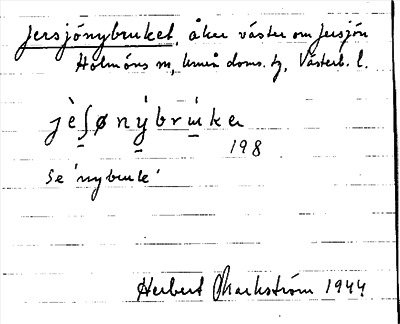 Jersjönybruket, åker väster om Jersjön
Holmöns sn, Umeå doms. tg, Västerb. l.
jèʃø nẏ́brẁka
198
Se 'nybruk'
Herbert Markström 1944